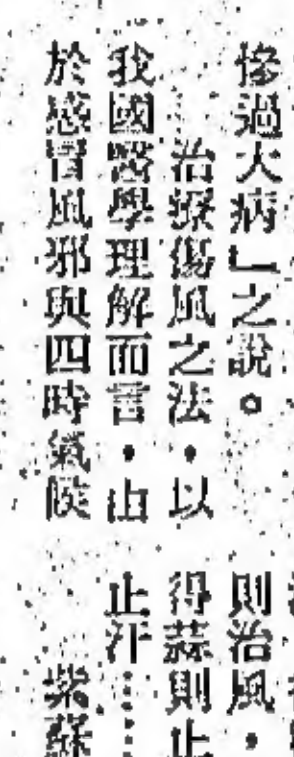 慘過大病」之說。
治療傷風之法，以
我國醫學理解而言，由
於感冒風邪與四時氣候
則治風，
得蒜則止
止汗……
紫蘇